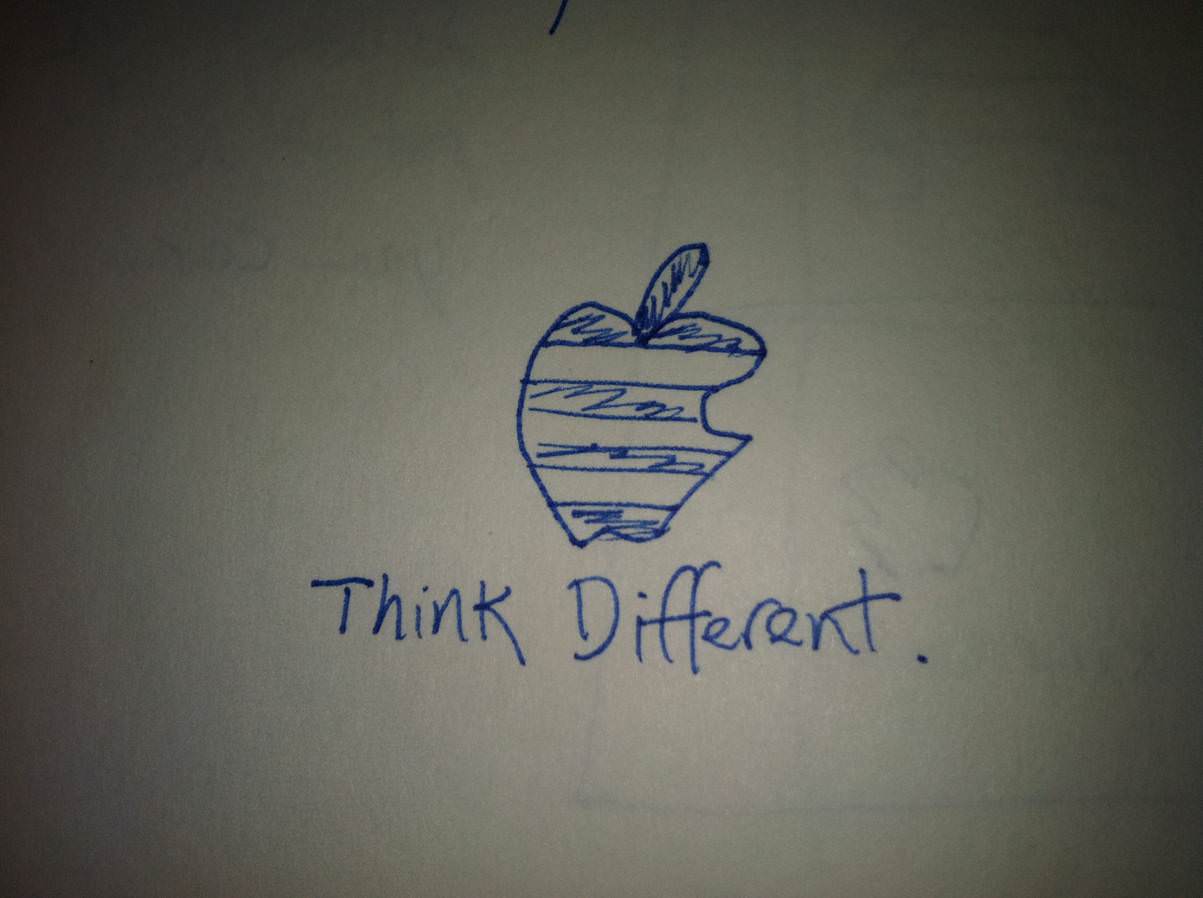 Think Different.